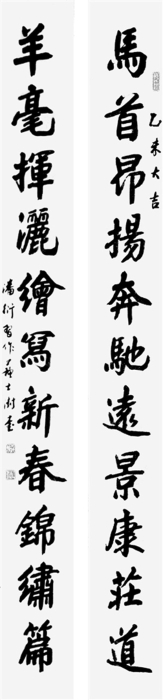 馬首昂揚奔馳遠景康莊道
乙未大吉
羊毫揮灑繪寫新春錦繡篇